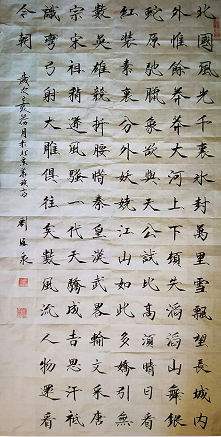 北國風光千裏冰封萬里雪飄望長城內
外惟餘莽莽大河上下頓失滔滔山舞銀
蛇原馳臘象欲與天公試比高須晴日看
紅裝素裹分外妖嬈江山如此多嬌引無
數英雄競折腰惜秦皇漢武略輸文采唐
宗宋祖稍遜風騷一代天驕成吉思汗祇
識彎弓射大雕俱往矣數風流人物還看
今朝